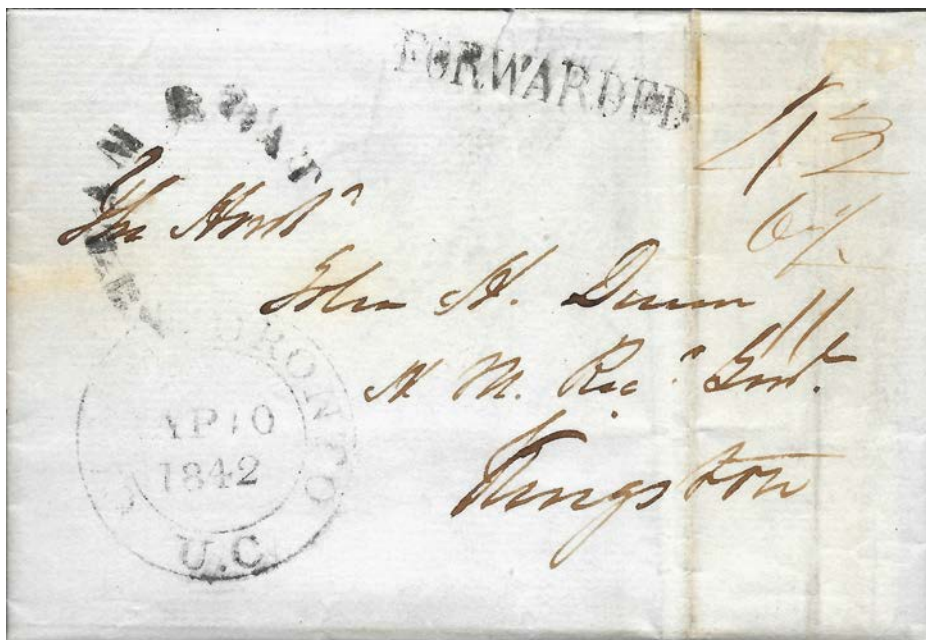 FORWARDED
STEAM BOAT
4 1/2
The Honble
John H. Dunn
H M. Rec.r Genl.
Kingston
11
TORONTO
AP 10
1842
U.C